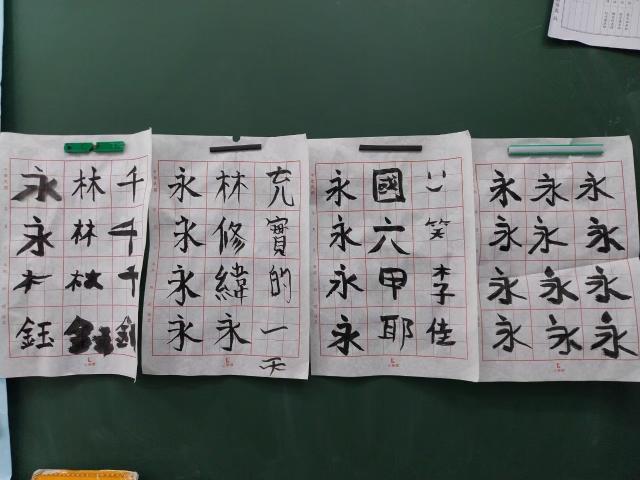 千千千
林林林
永永木鈺
充實的一天
林修緯永
永永永永
笑李佳
國六甲耶
永永永永
永永永永
永永永永
永永永永